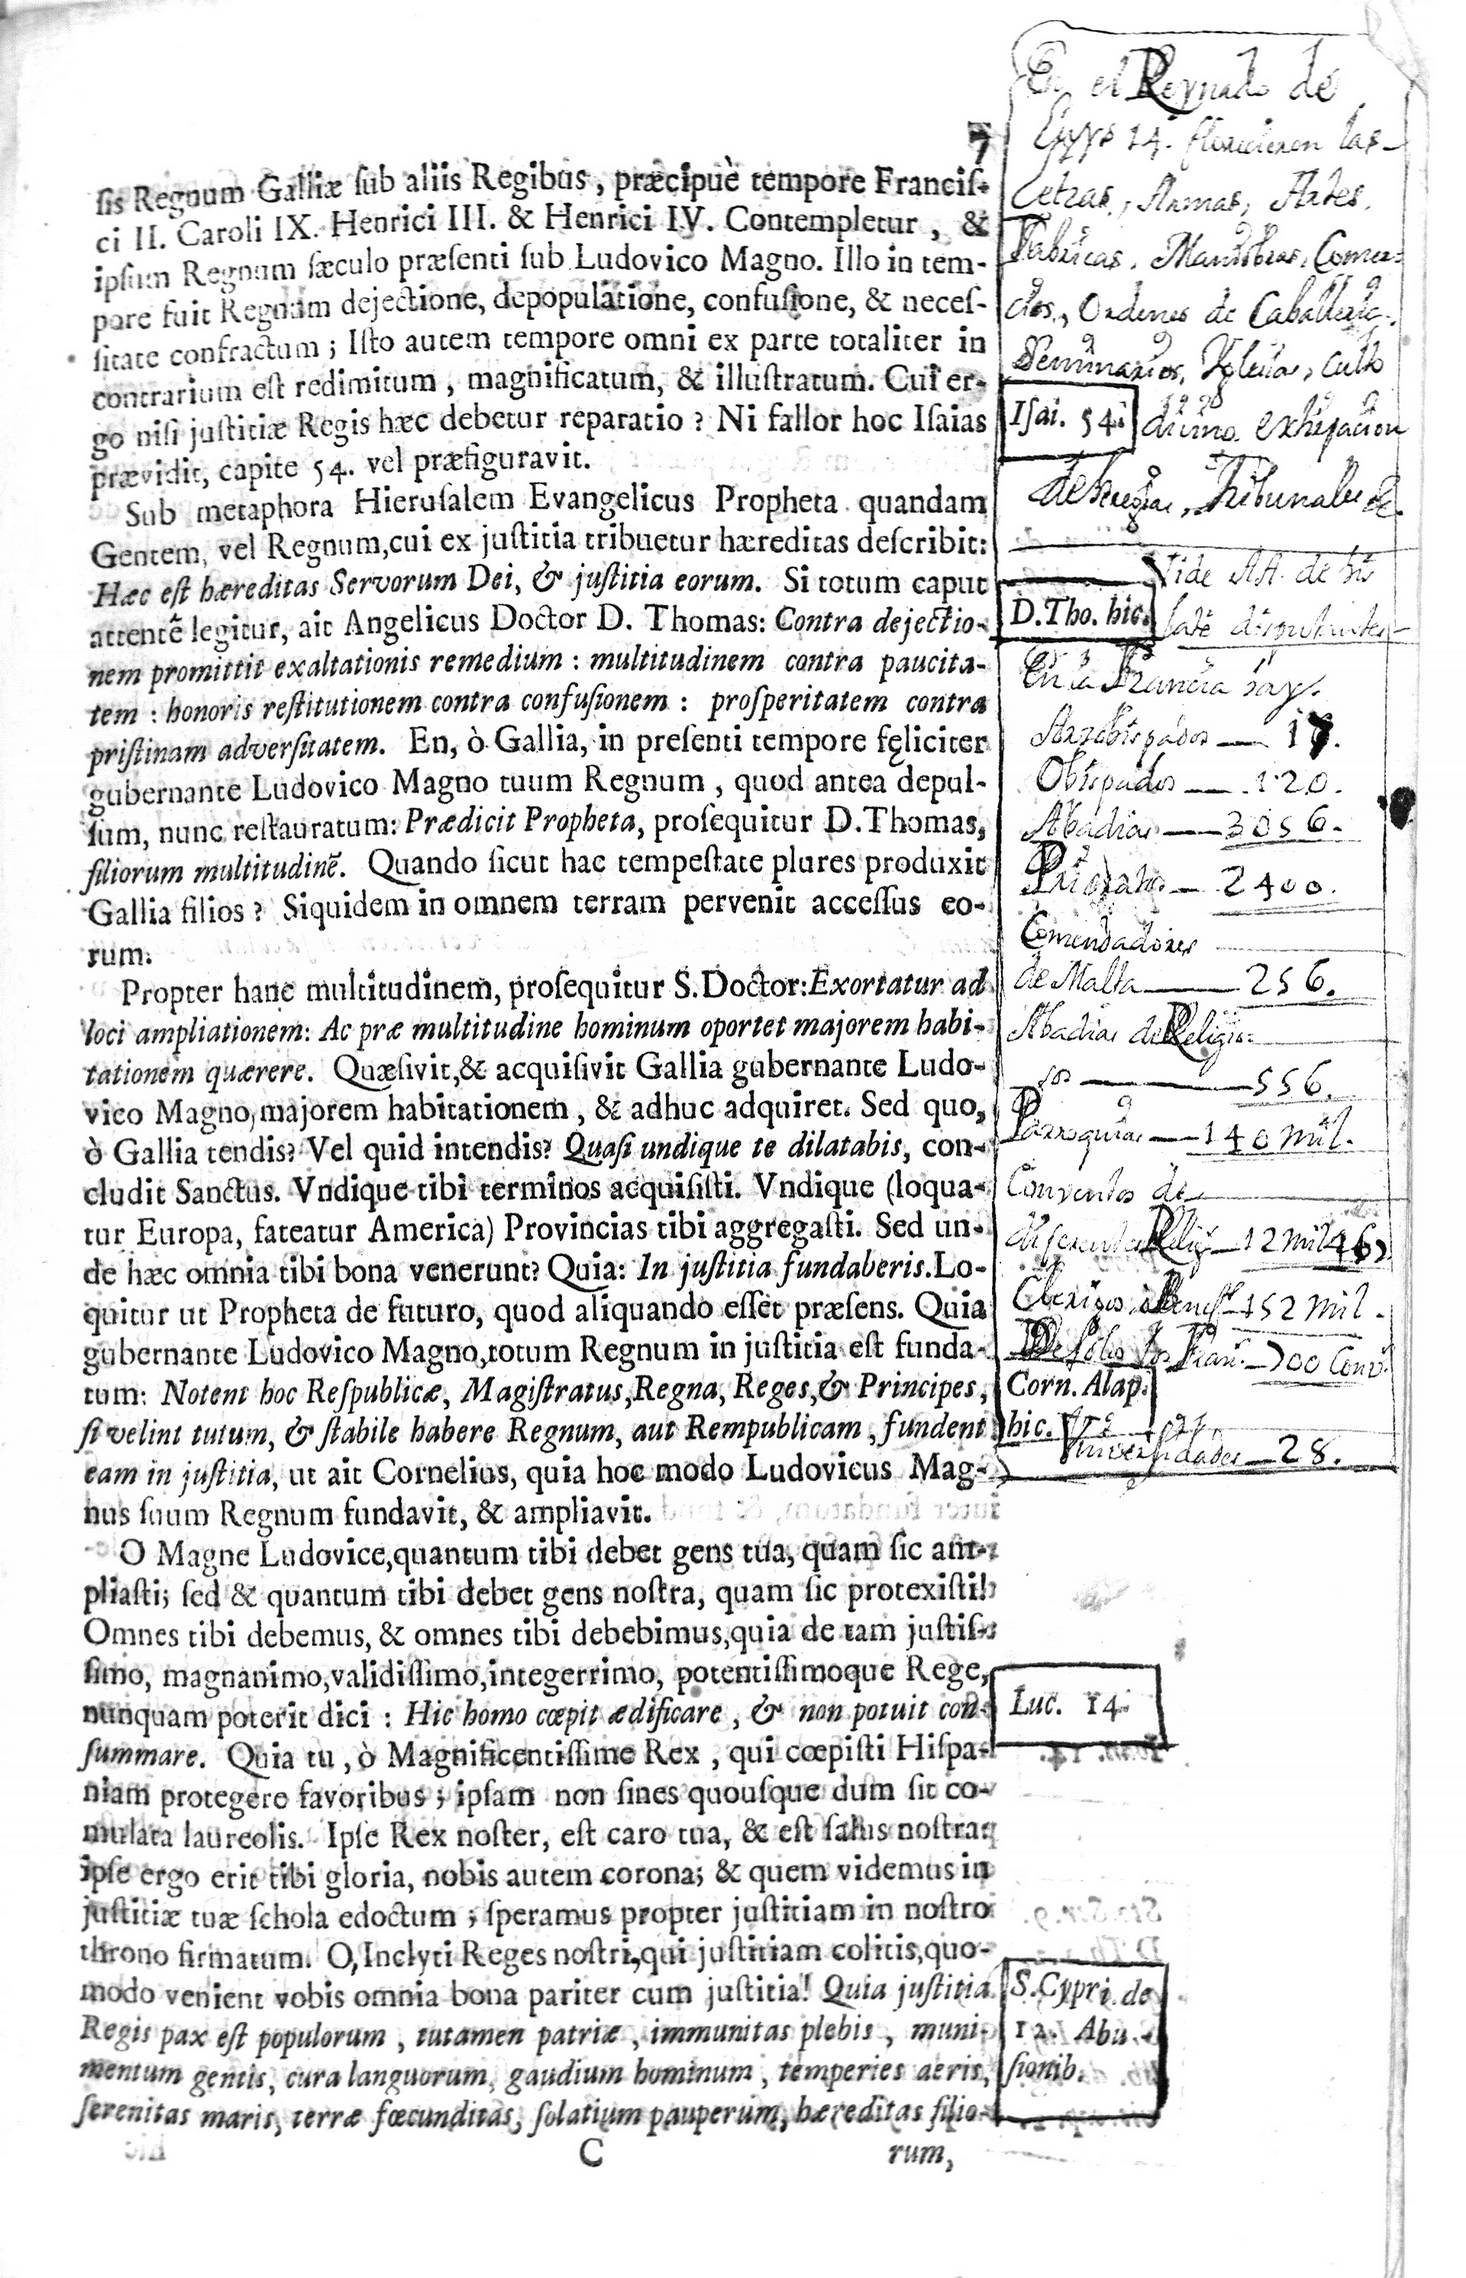 7
sis Regnum Galliæ sub aliis Regibus, præcipuè tempore Francis-
ci II. Caroli IX. Henrici III. & Henrici IV. Contempletur, &
ipsum Regnum sæculo præsenti sub Ludovico Magno. Illo in tem-
pore fuit Regnum dejectione, depopulatione, confusione, & neces-
sitate confractum; Isto autem tempore omni ex parte totaliter in
contrarium est redimitum, magnificatum, & illustratum. Cui er-
go nisi justitiæ Regis hæc debetur reparatio? Ni fallor hoc Isaias
prævidit, capite 54. vel præfiguravit.
Sub metaphora Hierusalem Evangelicus Propheta quandam
Gentem, vel Regnum, cui ex justitia tribuetur hæreditas describit:
Hæc est hæreditas Servorum Dei, & justitia eorum. Si totum caput
attentè legitur, ait Angelicus Doctor D. Thomas: Contra dejectio-
nem promittit exaltationis remedium: multitudinem contra paucita-
tem: honoris restitutionem contra confusionem: prosperitatem contra
pristinam adversitatem. En, ò Gallia, in presenti tempore fęliciter
gubernante Ludovico Magno tuum Regnum, quod antea depul-
sum, nunc restauratum: Prædicit Propheta, prosequitur D. Thomas,
filiorum multitudinẽ. Quando sicut hac tempestate plures produxit
Gallia filios? Siquidem in omnem terram pervenit accessus eo-
rum.
Propter hanc multitudinem, prosequitur S. Doctor: Exortatur ad
loci ampliationem: Ac præ multitudine hominum oportet majorem habi-
tationem quærere. Quæsivit, & acquisivit Gallia gubernante Ludo-
vico Magno, majorem habitationem, & adhuc adquiret. Sed quo,
ò Gallia tendis? Vel quid intendis? Quasi undique te dilatabis, con-
cludit Sanctus. Vndique tibi terminos acquisisti. Vndique (loqua-
tur Europa, fateatur America) Provincias tibi aggregasti. Sed un-
de hæc omnia tibi bona venerunt? Quia: In justitia fundaberis. Lo-
quitur ut Propheta de futuro, quod aliquando esset præsens. Quia
gubernante Ludovico Magno, totum Regnum in justitia est funda-
tum: Notent hoc Respublicæ, Magistratus, Regna, Reges, & Principes,
si velint tutum, & stabile habere Regnum, aut Rempublicam, fundent
eam in justitia, ut ait Cornelius, quia hoc modo Ludovicus Mag-
nus suum Regnum fundavit, & ampliavit.
O Magne Ludovice, quantum tibi debet gens tua, quam sic am-
pliasti; sed & quantum tibi debet gens nostra, quam sic protexisti!
Omnes tibi debemus, & omnes tibi debebimus, quia de tam justis-
simo, magnanimo, validissimo, integerrimo, potentissimoque Rege,
nunquam poterit dici: Hic homo cœpit ædificare, & non potuit con-
summare. Quia tu, ò Magnificentissime Rex, qui cœpisti Hispa-
niam protegere favoribus; ipsam non sines quousque dum sit co-
mulata laureolis. Ipse Rex noster, est caro tua, & est salus nostra:
ipse ergo erit tibi gloria, nobis autem corona; & quem videmus in
justitiæ tuæ schola edoctum; speramus propter justitiam in nostro
throno firmatum. O, Inclyti Reges nostri, qui justitiam colitis, quo-
modo venient vobis omnia bona pariter cum justitia! Quia justitia
Regis pax est populorum, tutamen patriæ, immunitas plebis, muni-
mentum gentis, cura languorum, gaudium hominum, temperies aeris,
serenitas maris, terræ fœcunditas, solatium pauperum, hæreditas filio-
C
rum,
En el Reynado de
Luys 14. florecieron las
Letras, Armas, Artes,
Fabricas, Maniobras, Comer-
cios, Ordenes de Caballeria,
Seminarios, Iglesias, culto
Isai. 54.
divino, extirpacion
de heregias, Tribunales &.
Vide AA. de his
late disputantes
D. Tho. hic.
En la Francia hay.
Arzobispados — 17.
Obispados — 120.
Abadias — 3056.
Prioratos — 2400.
Comendadores
de Malta — 256.
Abadias de Religio-
sos — 556.
Parroquias — 140 mil.
Conventos de
diferentes Relig. — 12 mil
Clerigos — 152 mil.
De solo los Fran. — 700 Conv.
Corn. Alap.
hic.
Universidades — 28.
Luc. 14.
S. Cypri. de
12. Abu-
sionib.